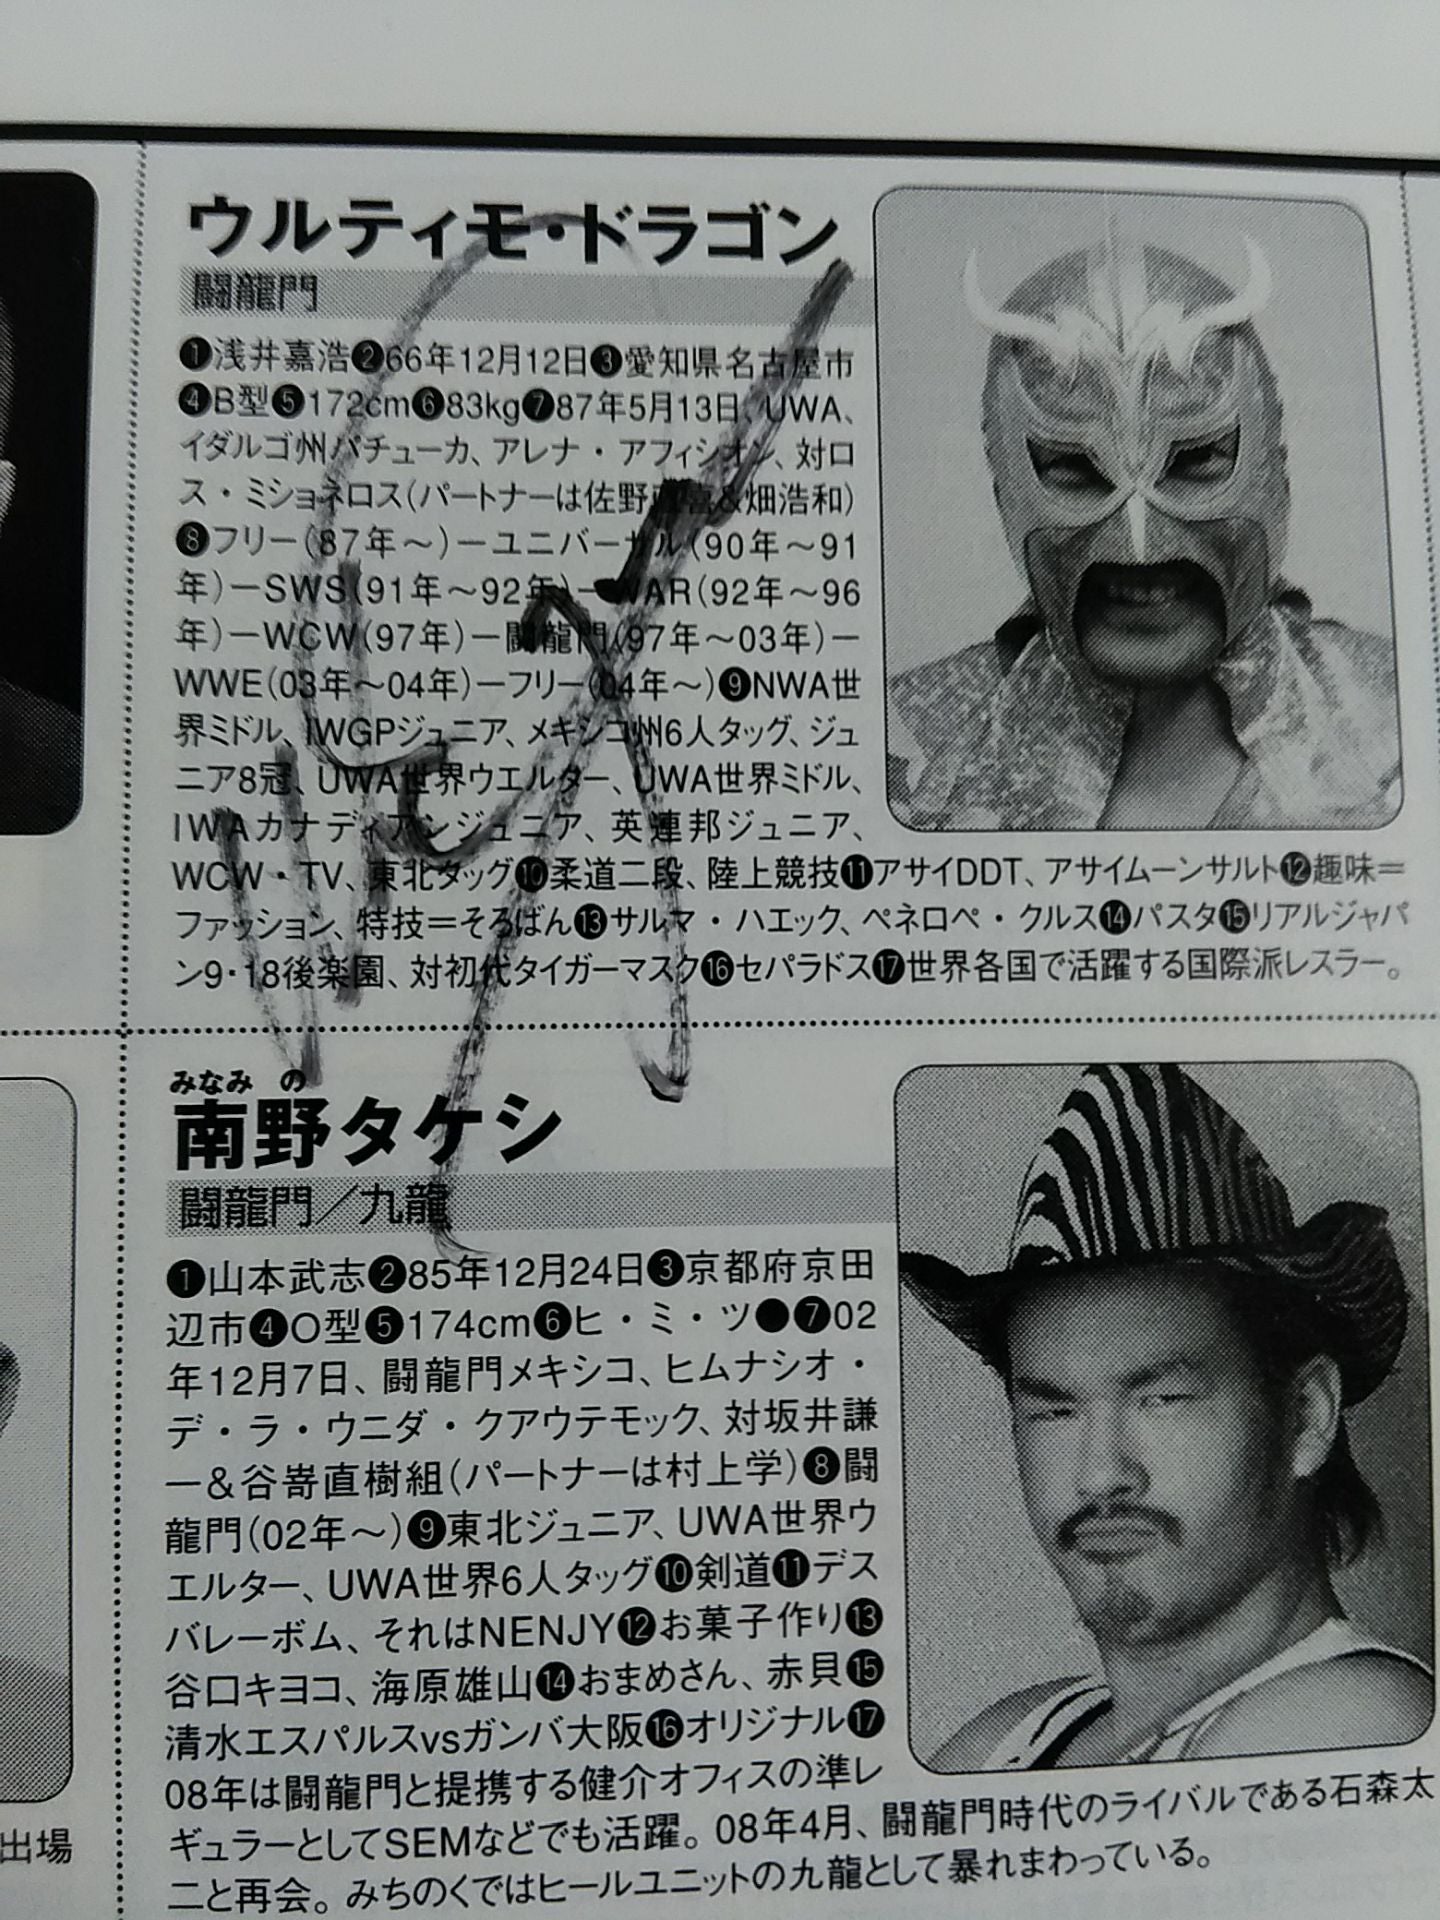 ウルティモ・ドラゴン
闘龍門
❶浅井嘉浩❷66年12月12日❸愛知県名古屋市
❹B型❺172cm❻83kg❼87年5月13日、UWA、
イダルゴ州パチューカ、アレナ・アフィシオン、対ロ
ス・ミショネロス(パートナーは佐野直喜&畑浩和)
❽フリー(87年～)―ユニバーサル(90年～91
年)―SWS(91年～92年)―WAR(92年～96
年)―WCW(97年)―闘龍門(97年～03年)―
WWE(03年～04年)―フリー(04年～)❾NWA世
界ミドル、IWGPジュニア、メキシコ州6人タッグ、ジュ
ニア8冠、UWA世界ウエルター、UWA世界ミドル、
IWAカナディアンジュニア、英連邦ジュニア、
WCW・TV、東北タッグ❿柔道二段、陸上競技⓫アサイDDT、アサイムーンサルト⓬趣味=
ファッション、特技=そろばん⓭サルマ・ハエック、ペネロペ・クルス⓮パスタ⓯リアルジャパ
ン9・18後楽園、対初代タイガーマスク⓰セパラドス⓱世界各国で活躍する国際派レスラー。
みなみ の
南野タケシ
闘龍門／九龍
❶山本武志❷85年12月24日❸京都府京田
辺市❹O型❺174cm❻ヒ・ミ・ツ●❼02
年12月7日、闘龍門メキシコ、ヒムナシオ・
デ・ラ・ウニダ・クアウテモック、対坂井謙
一&谷嵜直樹組(パートナーは村上学)❽闘
龍門(02年～)❾東北ジュニア、UWA世界ウ
エルター、UWA世界6人タッグ❿剣道⓫デス
バレーボム、それはNENJY⓬お菓子作り⓭
谷口キヨコ、海原雄山⓮おまめさん、赤貝⓯
清水エスパルスvsガンバ大阪⓰オリジナル⓱
08年は闘龍門と提携する健介オフィスの準レ
ギュラーとしてSEMなどでも活躍。08年4月、闘龍門時代のライバルである石森太
二と再会。みちのくではヒールユニットの九龍として暴れまわっている。
出場